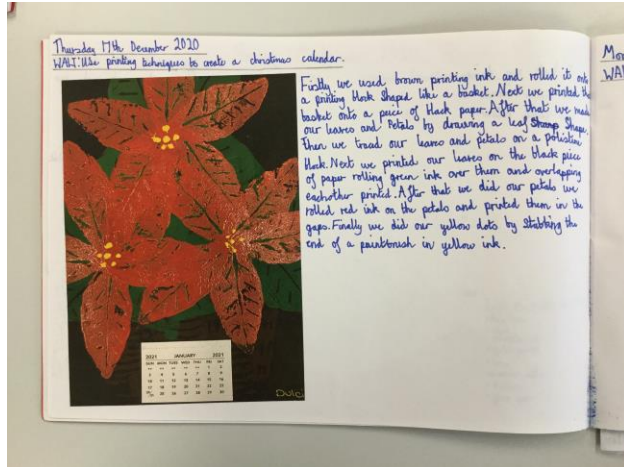 Thursday 17th December 2020
WALT: Use printing techniques to create a christmas calendar.
Firstly we used brown printing ink and rolled it onto
a printing block shaped like a basket. Next we printed the
basket onto a peice of black paper. After that we made
our leaves and Petals by drawing a leaf Shape.
Then we traced our leaves and petals on a polistine
block. Next we printed our leaves on the black piece
of paper rolling green ink over them and overlapping
eachother printed. After that we did our petals we
rolled red ink on the petals and printed them in the
gaps. Finally we did our yellow dots by Stabbing the
end of a paintbrush in yellow ink.
2021 JANUARY 2021
SUN MON TUES WED THU FRI SAT
1 2
3 4 5 6 7 8 9
10 11 12 13 14 15 16
17 18 19 20 21 22 23
25 26 27 28 29 30